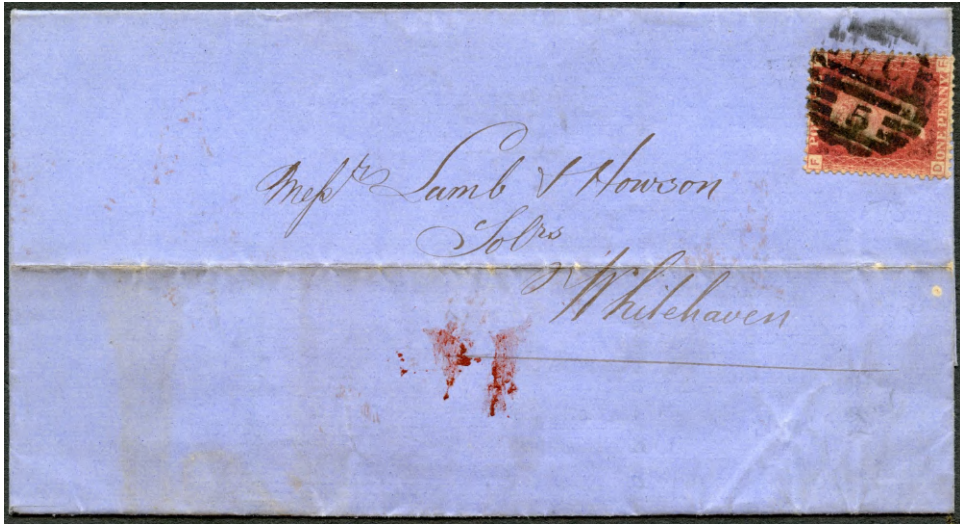 W.C
5
F
D
F
ONE PENNY
Messrs Lamb & Howson
Solrs
Whitehaven